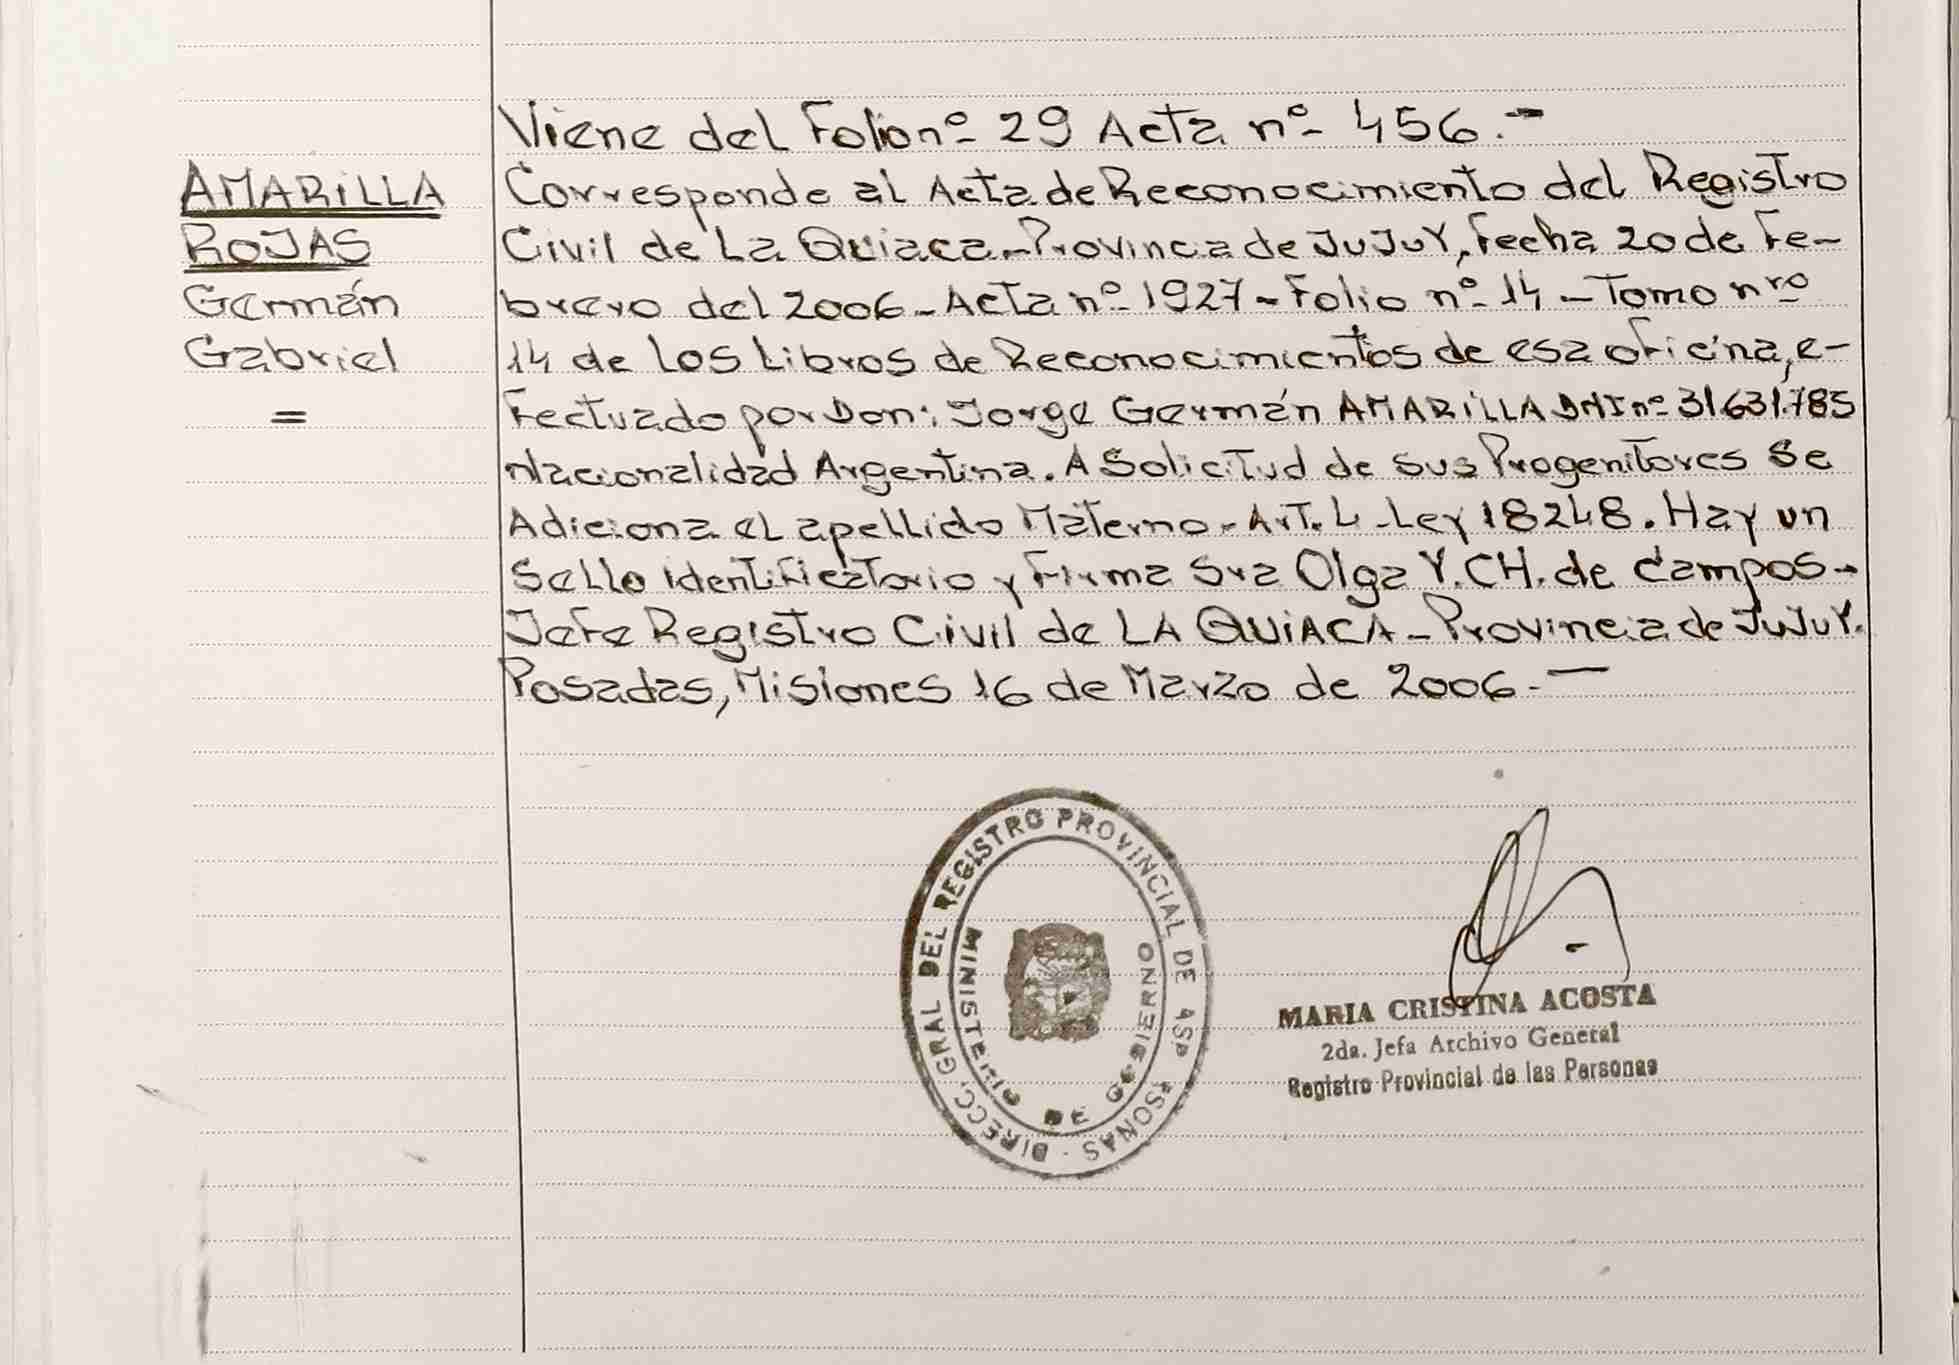 Viene del Folio nº 29 Acta nº 456.-
AMARILLA
ROJAS
Germán
Gabriel
=
Corresponde al Acta de Reconocimiento del Registro
Civil de La Quiaca-Provincia de JuJuY, Fecha 20 de Fe-
brero del 2006-Acta nº 1927-Folio nº 14-Tomo nro
14 de los Libros de Reconocimientos de esa oficina, e-
fectuado por Don: Jorge Germán AMARILLA DNI nº 31.631.785
Nacionalidad Argentina. A Solicitud de sus Progenitores Se
Adiciona el apellido Materno-Art. 4-Ley 18248. Hay un
Sello identificatorio y Firma Sra Olga Y.CH. de Campos-
Jefe Registro Civil de LA QUIACA-Provincia de JuJuY.
Posadas, Misiones 16 de Marzo de 2006.-
DIRECC. GRAL DEL REGISTRO PROVINCIAL DE
MINISTERIO DE GOBIERNO
MARIA CRISTINA ACOSTA
2da. Jefa Archivo General
Registro Provincial de las Personas